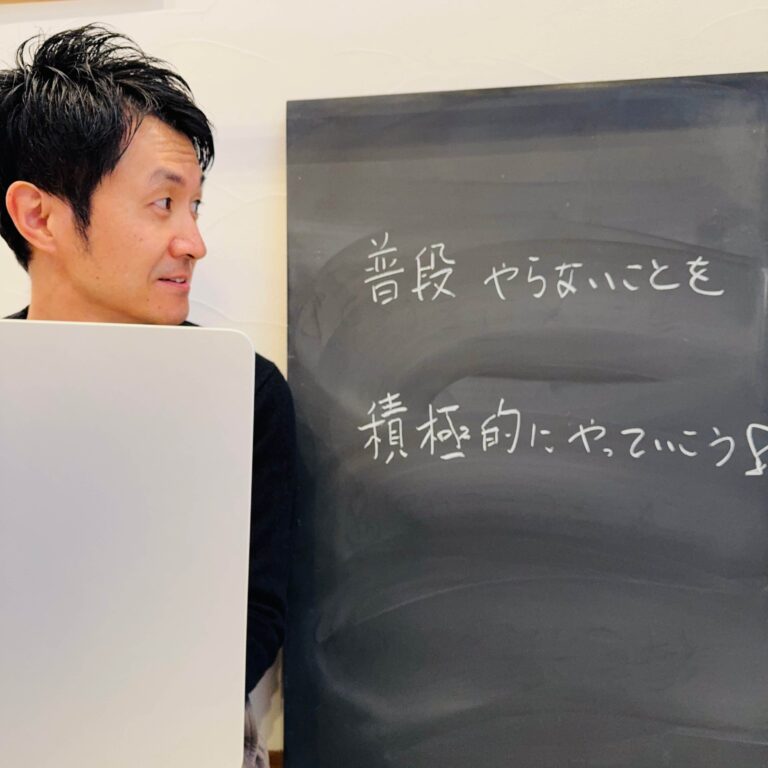 普段 やらないことを
積極的に やっていこう